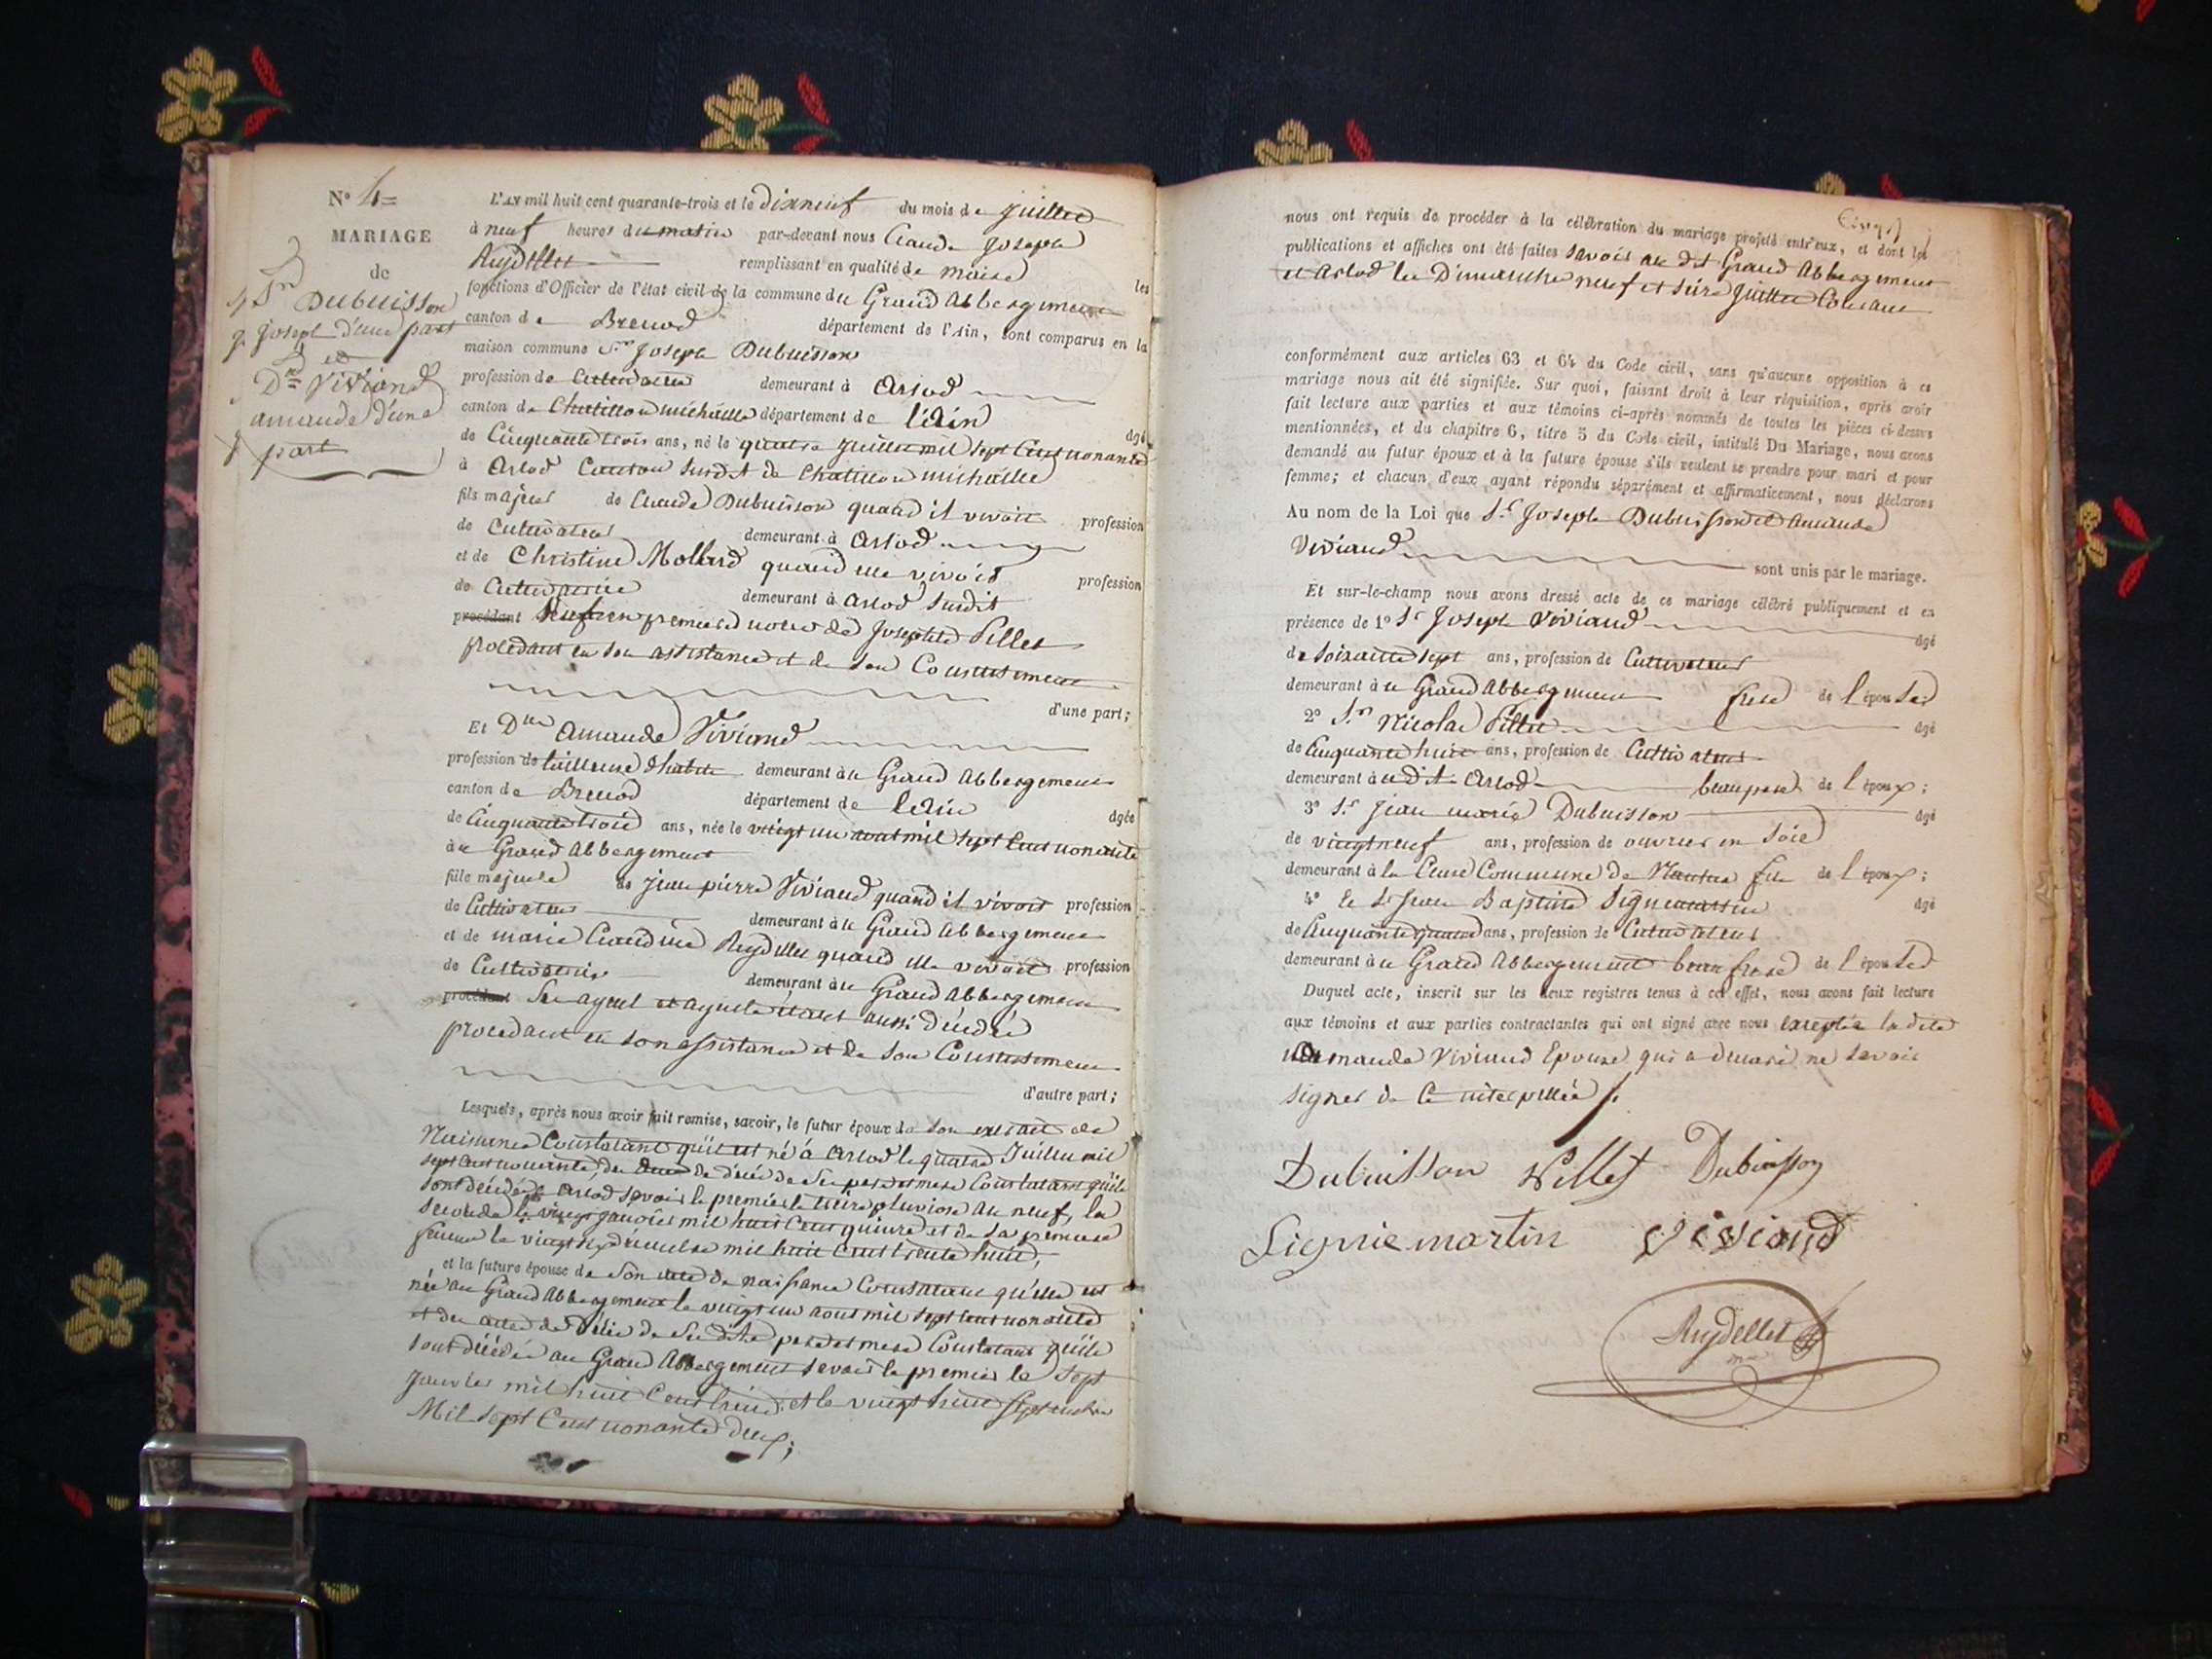 N° 4=
MARIAGE
de
Sr Dubuisson
Joseph d'une part
et
Dlle Viviand
amande d'une
part
L'AN mil huit cent quarante-trois et le dixneuf du mois de Juillet
à neuf heures du matin par-devant nous Claude Joseph
Reydellet remplissant en qualité de maire les
fonctions d'Officier de l'état civil de la commune du Grand Abbergement
canton de Brenod département de l'Ain, sont comparus en la
maison commune Sr Joseph Dubuisson
profession de Cultivateur demeurant à Arlod
canton de Chatillon michaille département de l'ain
âgé
de Cinquante trois ans, né le quatre Juillet mil sept Cent nonante
à Arlod Canton susdit de Chatillon michaille
fils majeur de Claude Dubuisson quand il vivoit profession
de Cultivateur demeurant à Arlod
et de Christine Mollard quand elle vivoit profession
de Cultivatrice demeurant à Arlod susdit
procédant Veuf en premiere noces de Josephte Pillet
procédant en son assistance et de son Consentement
d'une part;
Et Dlle Amande Viviand
profession de tailleuse d'habits demeurant au Grand Abbergement
canton de Brenod département de l'ain
âgée
de Cinquante trois ans, née le vingt un aout mil sept Cent nonante
au Grand Abbergement
fille majeure de Jean pierre Viviand quand il vivoit profession
de Cultivateur demeurant au Grand Abbergement
et de marie Claudine Reydellet quand elle vivoit profession
de Cultivatrice demeurant au Grand Abbergement
procédant Ses ayeul et ayeule étant aussi décédés
procédant en son assistance et de son Consentement
d'autre part;
Lesquels, après nous avoir fait remise, savoir, le futur époux de son extrait de
Naissance Constatant qu'il est né à Arlod le quatre Juillet mil
sept Cent nonante, des de décés de Ses pere et mere Constatant qu'ils
sont décédés à Arlod savoir le premier le treize pluviose an neuf, la
seconde le vingt janvier mil huit Cent quinze et de sa premiere
femme le vingt décembre mil huit Cent trente huit,
et la future épouse de Son acte de naissance Constatant qu'elle est
née au Grand Abbergement le vingt un aout mil sept cent nonante
et des actes de décés de Ses dits pere et mere Constatant qu'ils
sont décédés au Grand Abbergement savoir le premier le sept
Janvier mil huit Cent et le vingt huit septembre
Mil sept Cent nonante deux;
nous ont requis de procéder à la célébration du mariage projeté entr'eux, et dont les
publications et affiches ont été faites savoir au dit Grand Abbergement
et Arlod les Dimanches neuf et seize Juillet Courant
conformément aux articles 63 et 64 du Code civil, sans qu'aucune opposition à ce
mariage nous ait été signifiée. Sur quoi, faisant droit à leur réquisition, après avoir
fait lecture aux parties et aux témoins ci-après nommés de toutes les pièces ci-dessus
mentionnées, et du chapitre 6, titre 5 du Code civil, intitulé Du Mariage, nous avons
demandé au futur époux et à la future épouse s'ils veulent se prendre pour mari et pour
femme; et chacun d'eux, ayant répondu séparément et affirmativement, nous déclarons
Au nom de la Loi que Sr Joseph Dubuisson et Amande
Viviand sont unis par le mariage.
Et sur-le-champ nous avons dressé acte de ce mariage célébré publiquement et en
présence de 1° Sr Joseph Viviand âgé
de soixante sept ans, profession de Cultivateur
demeurant au Grand Abbergement frere de l'épouse
2° Sr Nicolas Pillet âgé
de Cinquante huit ans, profession de Cultivateur
demeurant au dit Arlod beau pere de l'époux;
3° Sr Jean marie Dubuisson âgé
de vingt neuf ans, profession de ouvrier en soie
demeurant à la Commune de Nantua fils de l'époux;
4° & Sr Jean Baptiste Signemartin âgé
de Cinquante quatre ans, profession de Cultivateur
demeurant au Grand Abbergement beau frere de l'épouse
Duquel acte, inscrit sur les deux registres tenus à cet effet, nous avons fait lecture
aux témoins et aux parties contractantes qui ont signé avec nous excepté la dite
Amande Viviand Epouse qui a declaré ne savoir
signer de ce interpellée /.
Dubuisson Pillet Dubuisson
Signiemartin Viviand
Reydellet